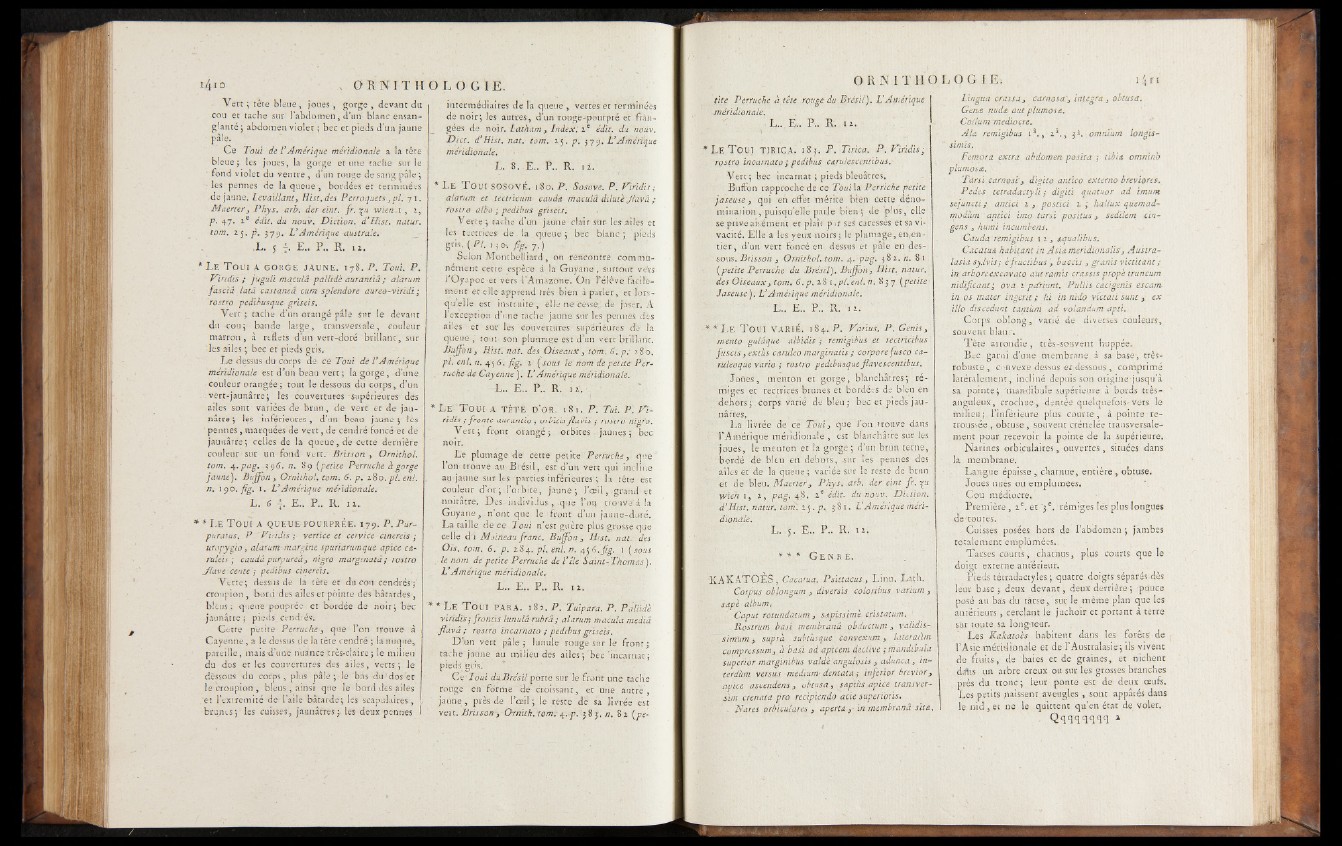 1410 ORNITHOLOGIE.
Vert ; tête bleue, joues, gorge, devant du
cou et tache sur l'abdomen, d'un blanc ensan-
glanté ; abdomen violet ; bec et pieds d'un jaune
pâle.
Ce Toui de l'Amérique méridionale a la tête
bleue ; les joues, la gorge et une tache sur le
fond violet du ventre, d'un rouge de sang pâle ;
les pennes de la queue, bordées et terminées
de jaune. Levaillant, Hist. des Perroquets, pl. 71.
Maerter, Phys. arb. der eint. fr. zu wien. 1, 2,
p. 47. 2e édit. du nouv. Diction. d'Hist. natur.
tom. 25. p. 379. L'Amérique australe.
L. 5 E.. P.. R. 12.
* LE TOUI A GORGE JAUNE. 178. P. Toui. P.
Viridis ; juguli maculâ pallidè aurantiâ ; alarum
fasciâ latâ castaneâ cum splendore aureo-viridi ;
rostro pedibusque griseis.
Vert ; tache d'un orangé pâle sur le devant
du cou ; bande large, transversale, couleur
marron, à reflets d'un vert-doré brillant, sur
les ailes ; bec et pieds gris.
Le dessus du corps de ce Toui de l'Amérique
méridionale est d'un beau vert ; la gorge, d'une
couleur orangée ; tout le dessous du corps, d'un
vert-jaunâtre ; les couvertures supérieures des
ailes sont variées de brun, de vert et de jau-
nâtre ; les inférieures, d'un beau jaune ; les
pennes, marquées de vert, de cendré foncé et de
jaunâtre ; celles de la queue, de cette dernière
couleur sur un fond vert. Brisson, Ornithol.
tom. 4. pag. 396. n. 89 (petite Perruche à gorge
jaune). Buffon, Ornithol. tom. 6. p. 280. pl. enl.
n. 190. fig. 1. L'Amérique méridionale.
L. 6 E.. P.. R. 12.
* * LE TOUI A QUEUE POURPRÉE. 179. P. Pur-
puratus. P. Viridis ; vertice et cervice cinereis ;
uropygio, alarum margine spuriarumque apice cæ-
ruleis ; caudâ purpureâ, nigro marginatâ ; rostro
flavescente ; pedibus cinereis.
Verte ; dessus de la tête et du cou cendrés ;
croupion, bord des ailes et pointe des bâtardes,
bleus ; queue pourprée et bordée de noir ; bec
jaunâtre ; pieds cendrés.
Cette petite Perruche, que l'on trouve à
Cayenne, a le dessus de la tête cendré ; la nuque,
pareille, mais d'une nuance très-claire ; le milieu
du dos et les couvertures des ailes, verts ; le
dessous du corps, plus pâle ; le bas du dos et
le croupion, bleus, ainsi que le bord des ailes
et l'extrémité de l'aile bâtarde ; les scapulaires,
brunes ; les cuisses, jaunâtres ; les deux pennes
intermédiaires de la queue, vertes et terminées
de noir ; les autres, d'un rouge-pourpré et fran-
gées de noir. Latham, Index. 2e édit. du nouv.
Dict. d'Hist. nat. tom. 25. p. 379. L'Amérique
méridionale.
L. 8. E.. P.. R. 12.
* LE TOUI SOSOVÉ. 180. P. Sosove. P. Viridis ;
alarum et tectricum caudæ maculâ dilutè flavâ ;
rostro albo ; pedibus griseis.
Verte ; tache d'un jaune clair sur les ailes et
les tectrices de la queue ; bec blanc ; pieds
gris. (Pl. 130. fig. 7.)
Selon Montbelliard, on rencontre commu-
nément cette espèce à la Guyane, surtout vers
l'Oyapoc et vers l'Amazone. On l'élève facile-
ment et elle apprend très bien à parler, et lors-
qu'elle est instruite, elle ne cesse de jaser. A
l'exception d'une tache jaune sur les pennes des
ailes et sur les couvertures supérieures de la
queue, tout son plumage est d'un vert brillant.
Buffon, Hist. nat. des Oiseaux, tom. 6. p. 280.
pl. enl. n. 456. fig. 2 (sous le nom de petite Per-
ruche de Cayenne). L'Amérique méridionale.
L.. E.. P.. R. 12.
* LE TOUI A TÊTE D'OR. 181. P. Tui. P. Vi-
ridis ; fronte aurantio, orbitis flavis ; rostro nigro.
Vert ; front orangé ; orbites jaunes ; bec
noir.
Le plumage de cette petite Perruche, que
l'on trouve au Brésil, est d'un vert qui incline
au jaune sur les parties inférieures ; la tête est
couleur d'or ; l'orbite, jaune ; l'œil, grand et
noirâtre. Des individus, que l'on trouve à la
Guyane, n'ont que le front d'un jaune-doré.
La taille de ce Toui n'est guère plus grosse que
celle du Moineau franc. Buffon, Hist. nat. des
Ois. tom. 6. p. 284. pl. enl. n. 456. fig. 1 (sous
le nom de petite Perruche de l'île Saint-Thomas).
L'Amérique méridionale.
L.. E.. P.. R. 12.
* * LE TOUI PARA. 182. P. Tuipara. P. Pallidè
viridis ; frontis lunulâ rubrâ ; alarum macula mediâ
flavâ ; rostro incarnato ; pedibus griseis.
D'un vert pâle ; lunule rouge sur le front ;
tache jaune au milieu des ailes ; bec incarnat ;
pieds gris.
Ce Toui du Brésil porte sur le front une tache
rouge en forme de croissant, et une autre,
jaune, près de l'œil ; le reste de sa livrée est
vert. Brisson, Ornith. tom. 4. p. 383. n. 82 (pe-
ORNITHOLOGIE. 1411
tite Perruche à tête rouge du Brésil). L'Amérique
méridionale.
L.. E.. P.. R. 12.
* LE TOUI TIRICA. 183. P. Tirica. P. Viridis,
rostro incarnato ; pedibus cærulescentibus.
Vert ; bec incarnat ; pieds bleuâtres.
Buffon rapproche de ce Toui la Perriche petite
jaseuse, qui en effet mérite bien cette déno-
mination, puisqu'elle parle bien ; de plus, elle
se prive aisément et plaît par ses caresses et sa vi-
vacité. Elle a les yeux noirs ; le plumage, en en-
tier, d'un vert foncé en dessus et pâle en des-
sous. Brisson, Ornithol. tom. 4. pag. 382. n. 81
(petite Perruche du Brésil). Buffon, Hist. natur.
des Oiseaux, tom. 6. p. 281. pl. enl. n. 837 (petite
Jaseuse). L'Amérique méridionale.
L.. E.. P.. R. 12.
* * LE TOUI VARIÉ. 184. P. Varius. P. Genis,
mento gulâque albidis ; remigibus et tectricibus
fuscis, extùs cæruleo marginatis ; corpore fusco cæ-
ruleoque vario ; rostro pedibusque flavescentibus.
Joues, menton et gorge, blanchâtres ; ré-
miges et rectrices brunes et bordées de bleu en
dehors ; corps varié de bleu ; bec et pieds jau-
nâtres.
La livrée de ce Toui, que l'on trouve dans
l'Amérique méridionale, est blanchâtre sur les
joues, le menton et la gorge ; d'un brun terne,
bordé de bleu en dehors, sur les pennes des
ailes et de la queue ; variée sur le reste de brun
et de bleu. Maerter, Phys. arb. der eint fr. zu
wien 1, 2, pag. 48. 2e édit. du nouv. Diction.
d'Hist. natur. tom. 25. p. 381. L'Amérique méri-
dionale.
L. 5. E.. P.. R. 12.
* * * GENRE.
KAKATOÈS, Cacatua. Psittacus, Linn. Lath.
Corpus oblongum, diversis coloribus varium,
sæpè album.
Caput rotundatum, sæpissimè cristatum.
Rostrum basi membranâ obductum, validis-
simum, suprà subtùsque convexum, lateralim
compressum, à basi ad apicem declive ; mandibula
superior marginibus valdè angulosis, adunca, in-
terdùm versus medium dentata ; inferior brevior,
apice ascendens, obtusa, sæpiùs apice transver-
sìm crenata pro recipiendo acie superioris.
Nares orbiculares, apertæ, in membranâ sitæ.
Lingua crassa, carnosa, integra, obtusa.
Genæ nudæ aut plumosæ.
Collum mediocre.
Ala remigibus 1ª., 2ª., 3ª. omnium longis-
simis.
Femora extra abdomen posita ; tibiæ omninò
plumosæ.
Tarsi carnosi, digito antico externo breviores.
Pedes tetradactyli ; digiti quatuor ad imum
sejuncti ; antici 2, postici 2 ; hallux quemad-
modùm aptici imo tarsi positus, sedilem cin-
gens, humi incumbens.
Cauda remigibus 12, æqualibus.
Cacatuæ habitant in Asiæ meridionalis, Austra-
lasiæ sylvis ; è fructibus, baccis, granis victitant ;
in arbore excavato aut ramis crassis propè truncum
nidificant ; ova 2 pariunt. Pullis cæcigenis escam
in os mater ingerit ; hi in nido victati sunt, ex
illo discedunt tantùm ad volandum apti.
Corps oblong, varié de diverses couleurs,
souvent blanc.
Tête arrondie, très-souvent huppée.
Bec garni d'une membrane à sa base, très-
robuste, convexe dessus et dessous, comprimé
latéralement, incliné depuis son origine jusqu'à
sa pointe ; mandibule supérieure à bords très-
anguleux, crochue, dentée quelquefois vers le
milieu ; l'inférieure plus courte, à pointe re-
troussée, obtuse, souvent crénelée transversale-
ment pour recevoir la pointe de la supérieure.
Narines orbiculaires, ouvertes, situées dans
la membrane.
Langue épaisse, charnue, entière, obtuse.
Joues nues ou emplumées.
Cou médiocre.
Première, 2e. et 3e. rémiges les plus longues
de toutes.
Cuisses posées hors de l'abdomen ; jambes
totalement emplumées.
Tarses courts, charnus, plus courts que le
doigt externe antérieur.
Pieds tétradactyles ; quatre doigts séparés dès
leur base ; deux devant, deux derrière ; pouce
posé au bas du tarse, sur le même plan que les
antérieurs, cerclant le juchoir et portant à terre
sur toute sa longueur.
Les Kakatoès habitent dans les forêts de
l'Asie méridionale et de l'Australasie ; ils vivent
de fruits, de baies et de graines, et nichent
dans un arbre creux ou sur les grosses branches
près du tronc ; leur ponte est de deux œufs.
Les petits naissent aveugles, sont appâtés dans
le nid, et ne le quittent qu'en état de voler.
Qqqqqqqq 2